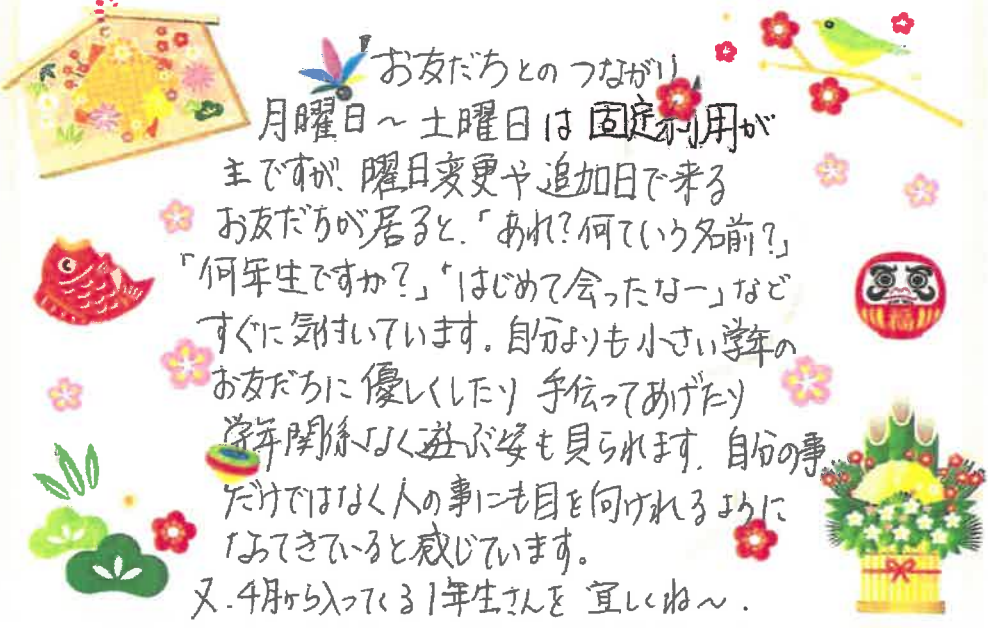 「お友だちとのつながり」
月曜日〜土曜日は固定利用が
主ですが、曜日変更や追加日で来る
お友だちが居ると、「あれ?何ていう名前?」
「何年生ですか?」「はじめて会ったなー」など
すぐに気付いています。自分よりも小さい学年の
お友だちに優しくしたり 手伝ってあげたり
学年関係なく遊ぶ姿も見られます。自分の事
だけではなく人の事にも目を向けれるように
なってきていると感じています。
又、4月から入ってくる1年生さんを 宜しくね〜.